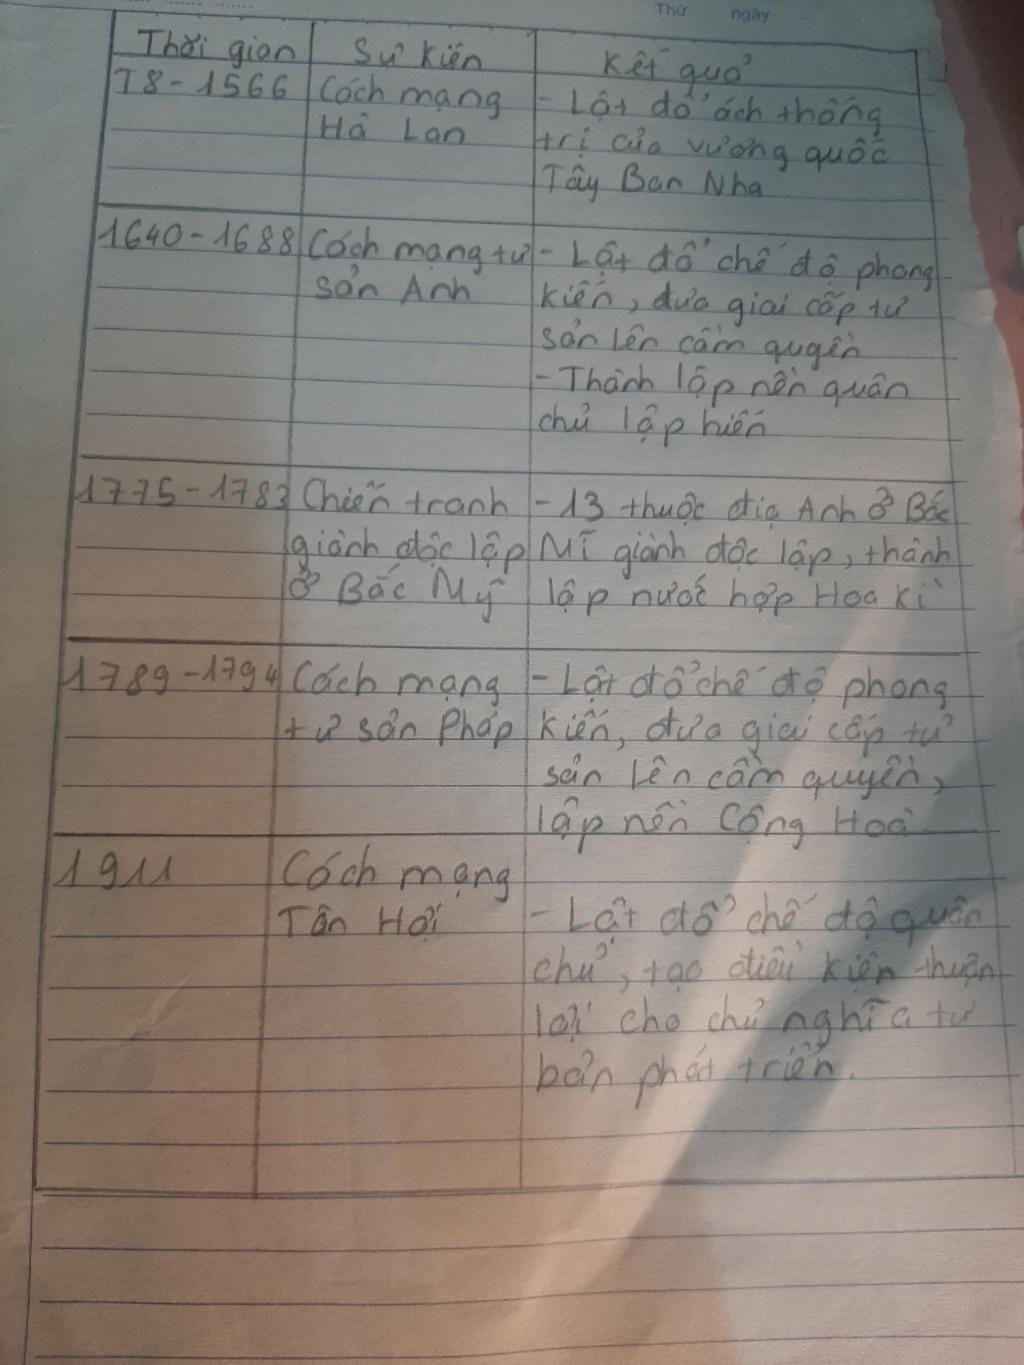 Thứ ngày
Thời gian Sự kiện Kết quả
T8-1566 Cách mạng - Lật đổ ách thống
Hà Lan trị của vương quốc
Tây Ban Nha
1640-1688 Cách mạng tư - Lật đổ chế độ phong
sản Anh kiến, đưa giai cấp tư
sản lên cầm quyền
- Thành lập nền quân
chủ lập hiến
1775-1783 Chiến tranh - 13 thuộc địa Anh ở Bắc
giành độc lập Mĩ giành độc lập, thành
ở Bắc Mỹ lập nước hợp Hoa Kì
1789-1794 Cách mạng - Lật đổ chế độ phong
tư sản Pháp kiến, đưa giai cấp tư
sản lên cầm quyền,
lập nền Cộng Hoà
1911 Cách mạng
Tân Hợi - Lật đổ chế độ quân
chủ, tạo điều kiện thuận
lợi cho chủ nghĩa tư
bản phát triển.